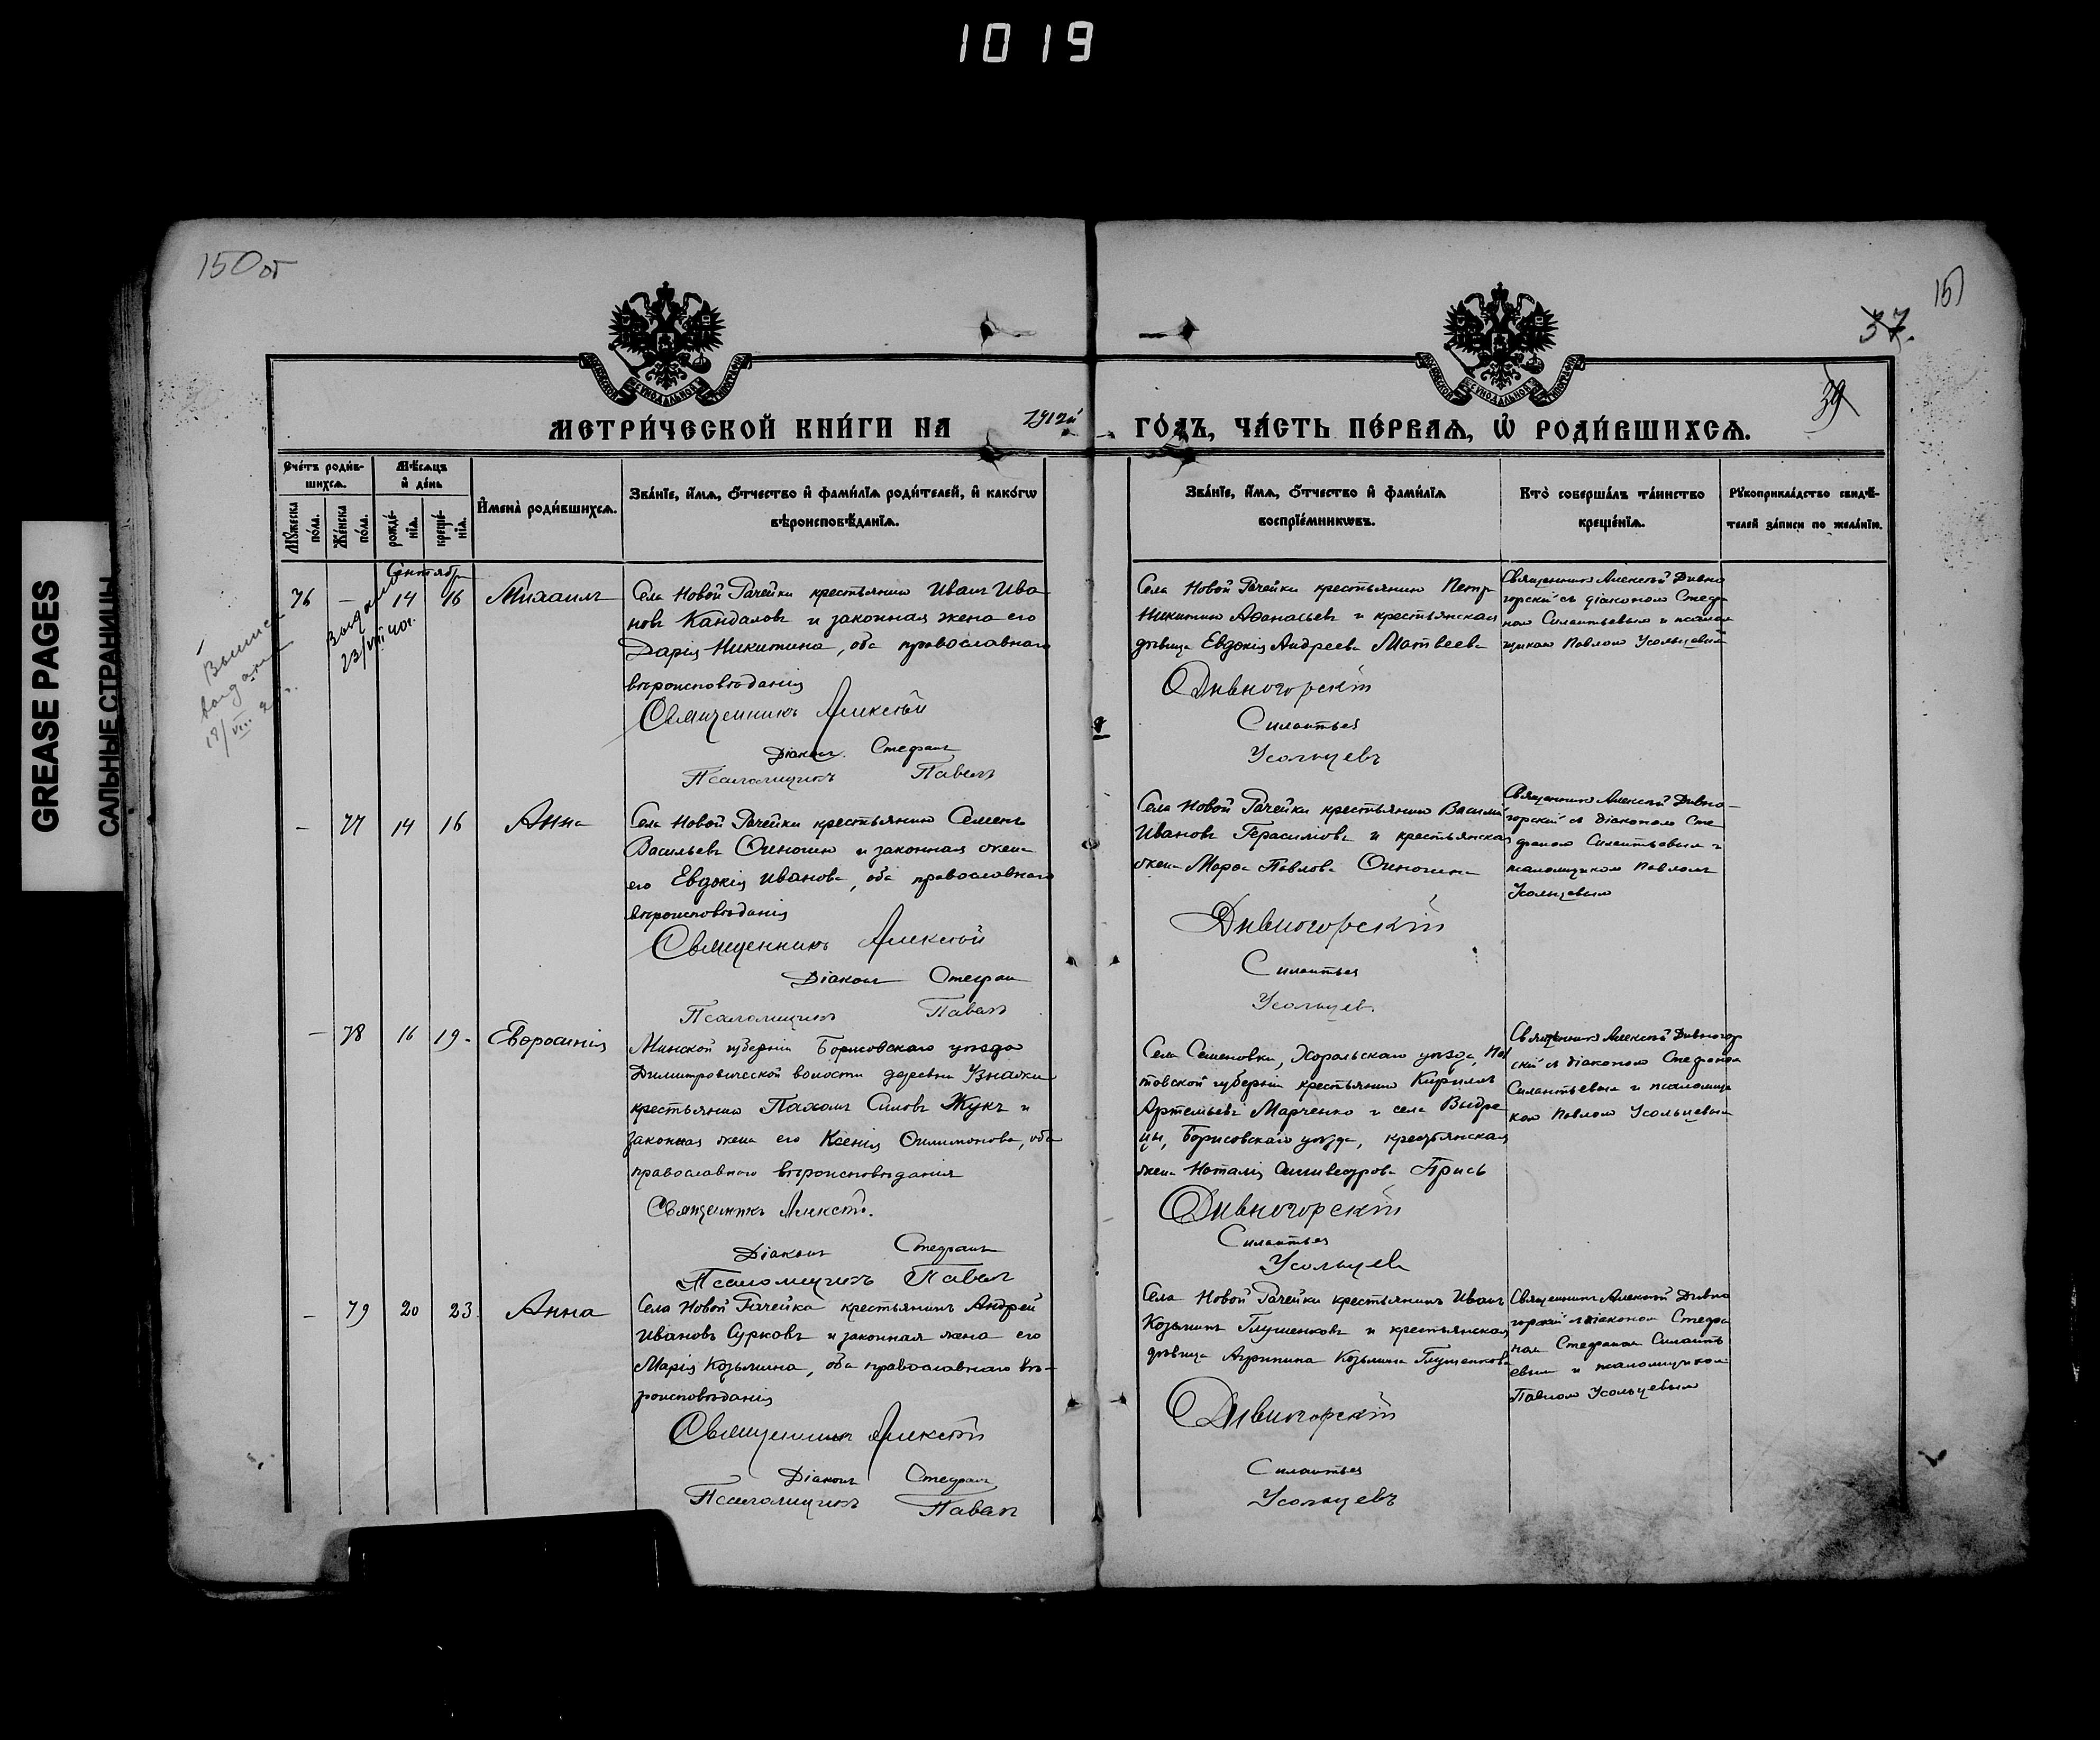 1019
150 об
151
37.
39
GREASE PAGES
САЛЬНЫЕ СТРАНИЦЫ
МЕТРИ́ЧЕСКОЙ КНИ́ГИ НА 1912й ГО́ДЪ, ЧА́СТЬ ПЕ́РВАѦ, Ѡ҆ РОДИ́ВШИХСѦ.
Сче́тъ роди́в-
шихсѧ.
Мѣ́сѧцъ
и҆ де́нь
Мꙋ́жеска
по́ла.
Же́нска
по́ла.
рожде́-
нїѧ.
креще́-
нїѧ.
И҆мена̀ роди́вшихсѧ.
Зва́нїе, и҆́мѧ, ѻ҆́тчество и҆ фами́лїѧ роди́телей, и҆ како́гѡ
вѣроисповѣ́данїѧ.
Зва́нїе, и҆́мѧ, ѻ҆́тчество и҆ фами́лїѧ
воспрїе́мникѡвъ.
Кто̀ соверша́лъ та́инство
креще́нїѧ.
Рꙋкоприкла́дство свидѣ́-
телей за́писи по жела́нїю.
Сентябрь
выдан
23/VIII 40г.
Выписи
выданы
76 — 14 16 Михаилъ
Села Новой Рачейки крестьянинъ Иванъ Ива-
новъ Кандаловъ и законная жена его
Дарія Никитина, оба православнаго
вѣроисповѣданія
Священникъ Алексѣй
Діаконъ Стефанъ
Псаломщикъ Павелъ
Села Новой Рачейки крестьянинъ Петръ
Никитинъ Аѳанасьевъ и крестьянская
дѣвица Евдокія Андреева Матвеева
Дивногорскій
Силантьев
Усольцевъ
Священникъ Алексѣй Дивно
горскій съ діакономъ Стефа
номъ Силантьевым и псалом
щиком Павлом Усольцевым
— 77 14 16 Анна
Села Новой Рачейки крестьянинъ Семенъ
Васильевъ Финогин и законная жена
его Евдокія Иванова, оба православнаго
вѣроисповѣданія
Священникъ Алексѣй
Діаконъ Стефан
Псаломщикъ Павелъ
Села Новой Рачейки крестьянинъ Василій
Ивановъ Герасимовъ и крестьянская
жена Марѳа Павлова Финогина
Дивногорскій
Силантьев
Усольцев
Священникъ Алексѣй Дивно-
горскій съ діаконом Сте
фаном Силантьевым и
псаломщиком Павломъ
Усольцевым
— 78 16 19. Евфросинія
Минской губерніи Борисовскаго уѣзда
Димитровической волости деревни Узнажи
крестьянинъ Пахомъ Силовъ Жукъ и
законная жена его Ксенія Филимонова, оба
православнаго вѣроисповѣданія
Священникъ Алексѣй.
Діаконъ Стефанъ
Псаломщикъ Павел
Села Семеновки, Хорольскаго уѣзда, Пол
товской губерніи крестьянинъ Кириллъ
Артемьевъ Марченко и села Выдри
цы, Борисовскаго уѣзда, крестьянская
жена Наталія Силивестрова Прись
Дивногорскій
Силантьев
Усольцев
Священникъ Алексѣй Дивногор
скій съ діаконом Стефаном
Силантьевым и псаломщи
ком Павлом Усольцевым
— 79 20 23. Анна
Села Новой Рачейки крестьянинъ Андрей
Ивановъ Сурковъ и законная жена его
Марія Козьмина, оба православнаго вѣ-
роисповѣданія
Священникъ Алексѣй
Діаконъ Стефанъ
Псаломщикъ Павел
Села Новой Рачейки крестьянинъ Иванъ
Козьминъ Глушенковъ и крестьянская
дѣвица Агрипина Козьмина Глушенкова
Дивногорскій
Силантьев
Усольцевъ
Священникъ Алексѣй Дивно
горскій съ діаконом Стефа
ном Стефаном Силанть
евым и псаломщиком
Павлом Усольцевым